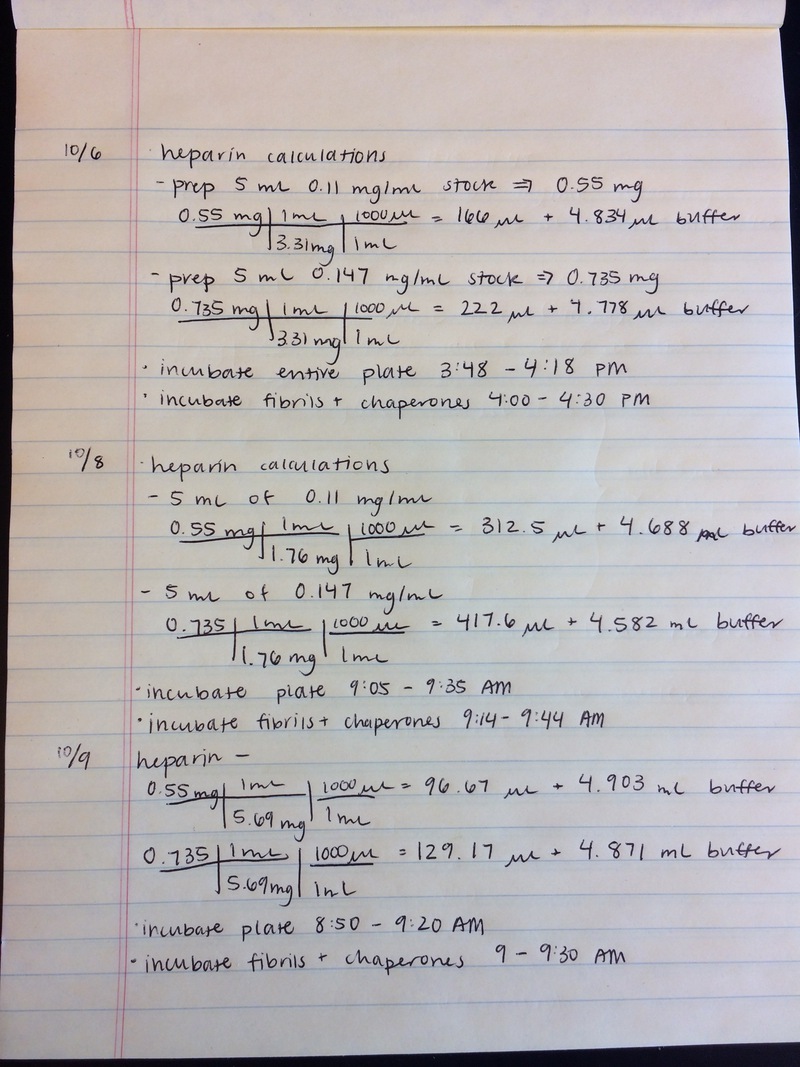 10/6 · heparin calculations
- prep 5 mL 0.11 mg/mL stock ⇒ 0.55 mg
0.55 mg | 1 mL | 1000 μL = 166 μL + 4.834 μL buffer
3.31 mg | 1 mL
- prep 5 mL 0.147 mg/mL stock ⇒ 0.735 mg
0.735 mg | 1 mL | 1000 μL = 222 μL + 4.778 μL buffer
3.31 mg | 1 mL
· incubate entire plate 3:48 - 4:18 PM
· incubate fibrils + chaperones 4:00 - 4:30 PM
10/8 · heparin calculations
- 5 mL of 0.11 mg/mL
0.55 mg | 1 mL | 1000 μL = 312.5 μL + 4.688 mL buffer
1.76 mg | 1 mL
- 5 mL of 0.147 mg/mL
0.735 | 1 mL | 1000 μL = 417.6 μL + 4.582 mL buffer
1.76 mg | 1 mL
· incubate plate 9:05 - 9:35 AM
· incubate fibrils + chaperones 9:14 - 9:44 AM
10/9 heparin -
0.55 mg | 1 mL | 1000 μL = 96.67 μL + 4.903 mL buffer
5.69 mg | 1 mL
0.735 | 1 mL | 1000 μL = 129.17 μL + 4.871 mL buffer
5.69 mg | 1 mL
· incubate plate 8:50 - 9:20 AM
· incubate fibrils + chaperones 9 - 9:30 AM